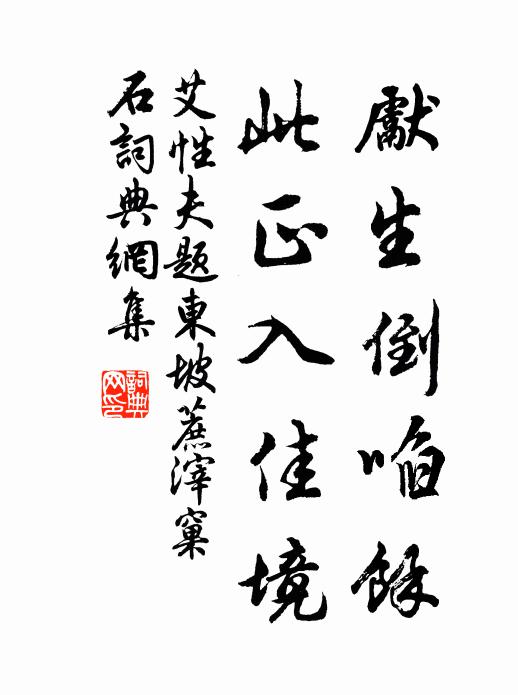 獻生倒啗餘
此正入佳境
艾性夫題東坡蔗滓窠
石詞典網集
詞典
网印